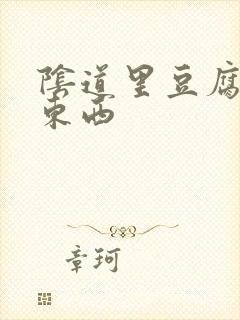 陰道里豆腐
東西
章珂